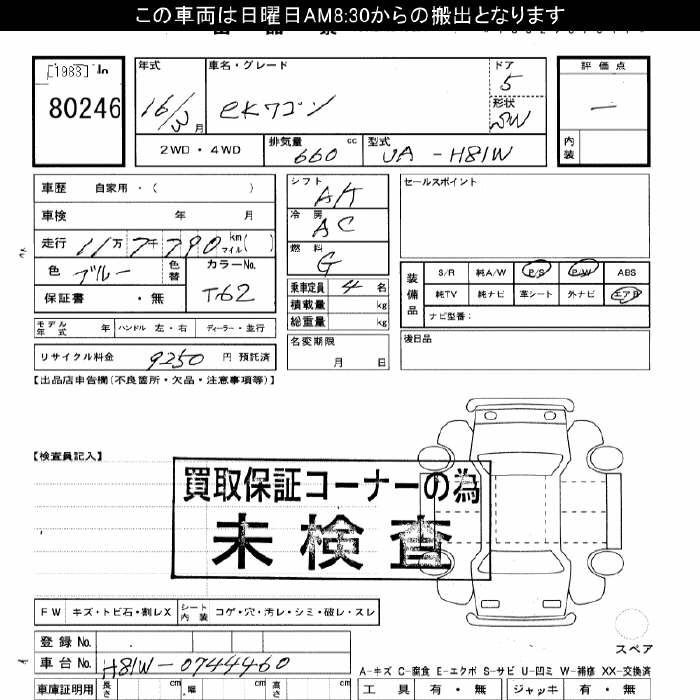 この車両は日曜日AM8:30からの搬出となります
[1983] In
80246
年式
16/3月
車名・グレード
eKワゴン
ドア
5
形状
SW
評価点
―
内装
2WD・4WD
排気量 660 cc
型式 UA-H81W
車歴 自家用・( )
車検 年 月
走行 11万7千790 km マイル( )
色 ブルー
色替
カラーNo. T62
保証書 ・無
シフト AT
冷房 AC
燃料 G
乗車定員 4 名
積載量 kg
総重量 kg
セールスポイント
装備品
S/R 純A/W P/S P/W ABS
純TV 純ナビ 革シート 外ナビ エアB
ナビ型番:
モデル年式 年 ハンドル 左・右 ディーラー・並行
リサイクル料金 9250 円 預託済
名変期限
月 日
後日品
【出品店申告欄(不良箇所・欠品・注意事項等)】
【検査員記入】
買取保証コーナーの為
未検査
FW キズ・トビ石・割レX シート内装 コゲ・穴・汚レ・シミ・破レ・スレ
スペア
登録No.
車台No. H81W-0744460
A-キズ C-腐食 E-エクボ S-サビ U-凹ミ W-補修 XX-交換済
車庫証明用 長さ cm 幅 cm 高さ cm
工具 有・無 ジャッキ 有・無